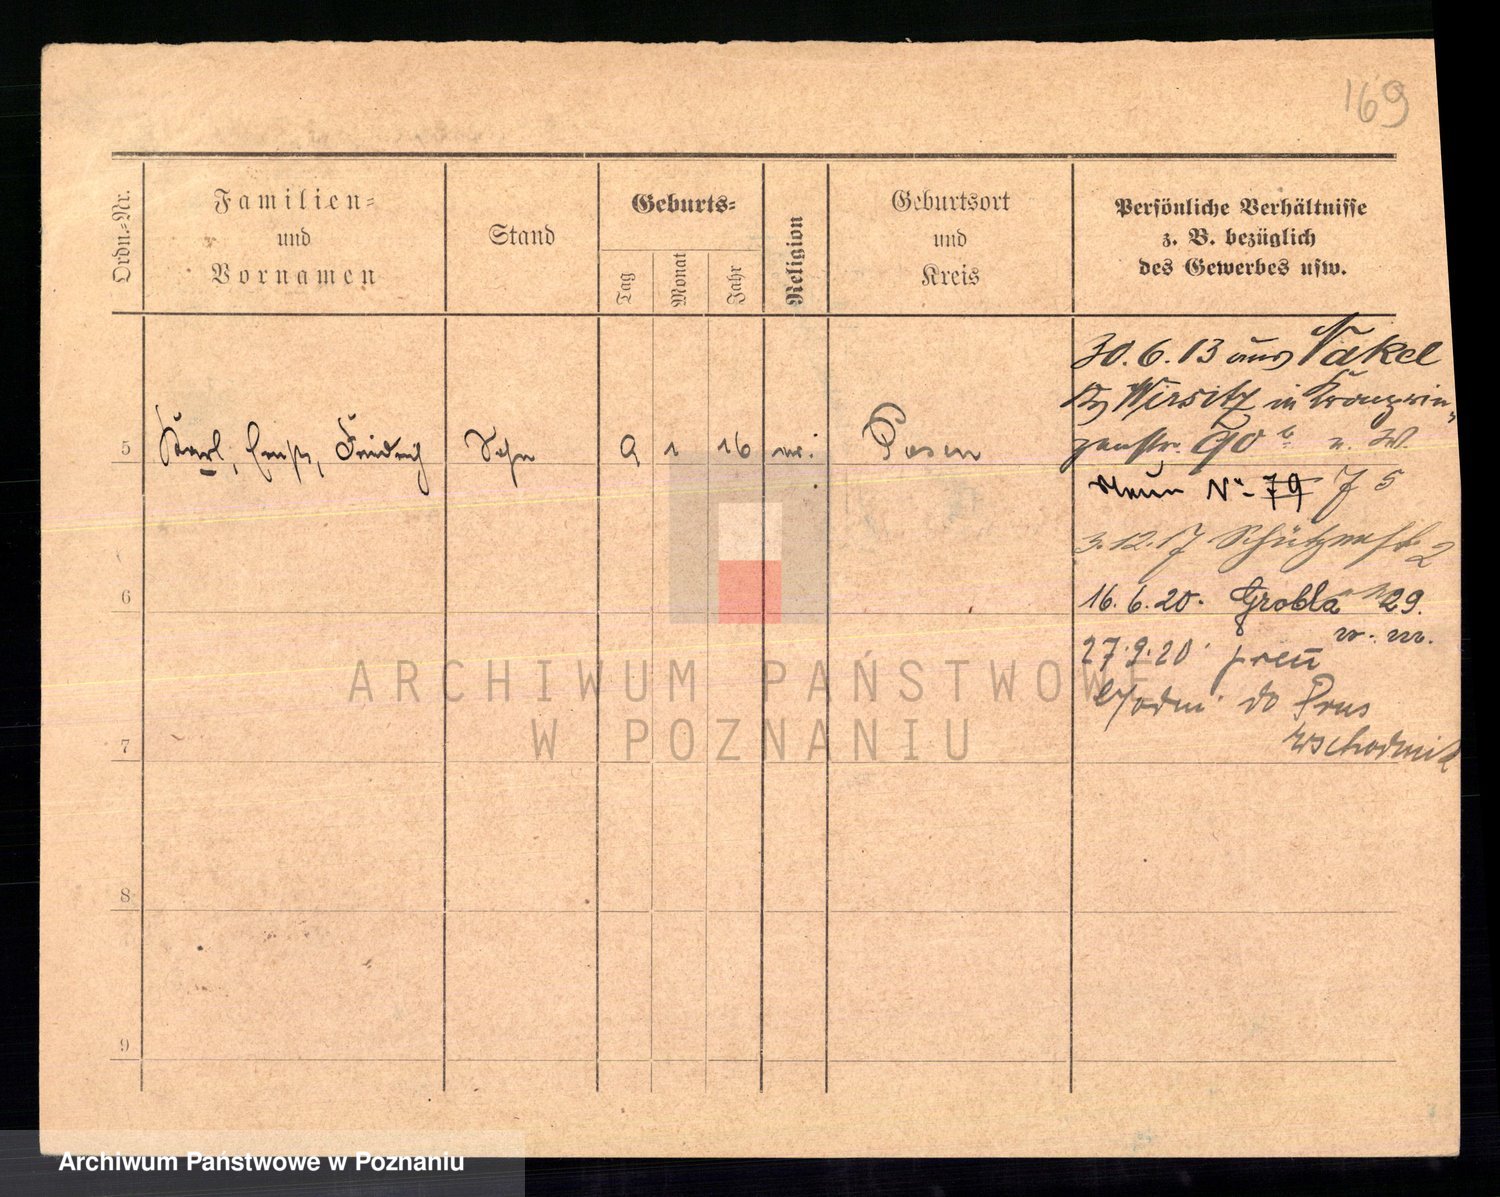 169
Ordn.-Nr.
Familien-
und
Vornamen
Stand
Geburts-
Tag
Monat
Jahr
Religion
Geburtsort
und
Kreis
Persönliche Verhältnisse
z. B. bezüglich
des Gewerbes usw.
30.6.13 aus Nakel
Wirsitz in Kronprin-
zenstr. 90
5 Karl, Ernst, Friedrich Sohn 9 1 16 Posen
Neue No 79 75
3.12.17 Schützenstr. 2
6
16.6.20. Grobla 29.
27.9.20
do Prus
7
wschodnich
8
9
ARCHIWUM PAŃSTWOWE
W POZNANIU
Archiwum Państwowe w Poznaniu